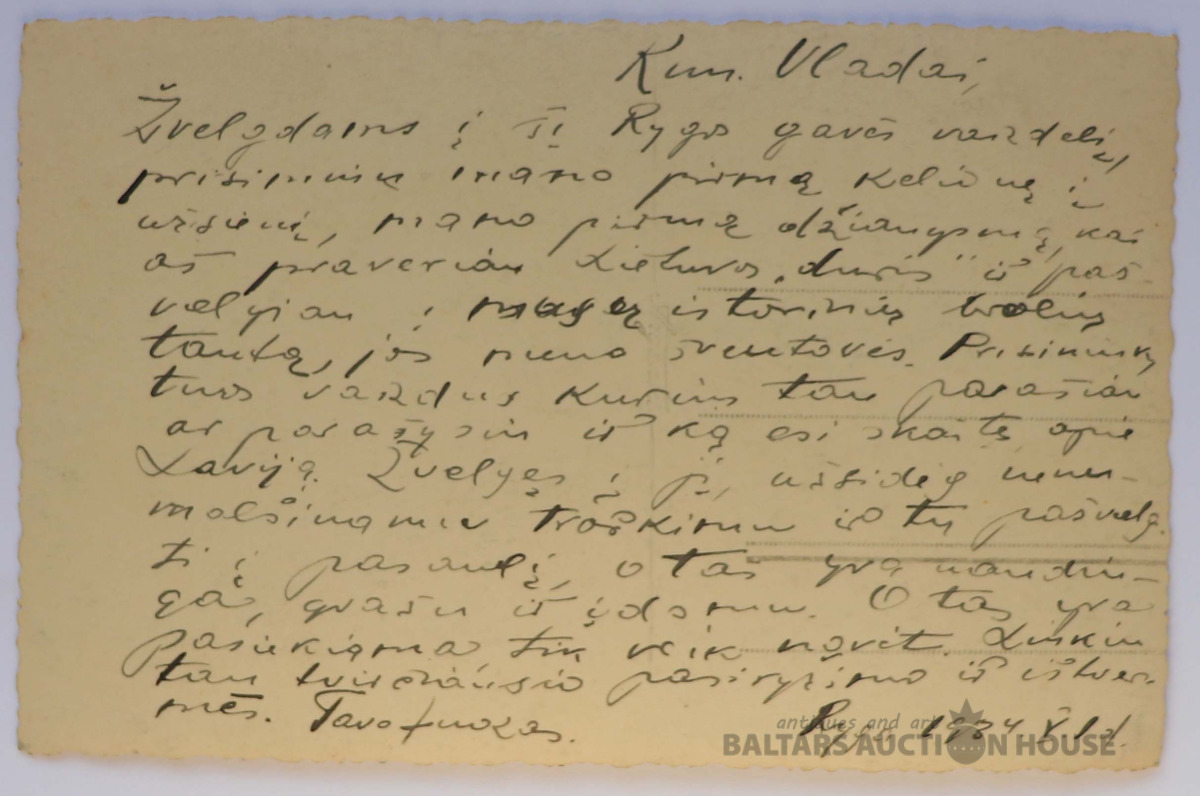 Kun. Vladai,
Žvelgdams į šį Rygos gavės vaizdelį,
prisiminsk mano pirmą kelionę į
užsienį, mano pirmą džiaugsmą, kai
aš praveriau Lietuvos „duris" iš paž-
velgiau į mūsų istorinių brolių
tautą, jos meno šventovės. Prisiminsk
tuos vaizdus kuriuos tau parašiau
ar parašysiu iš ką esi skaitę apie
Laviją. Žvelgęs į jį, užsidėg nenu-
malšinamu troškimu iš tų pažvelg-
ti į pasaulį, o tas yra naudin-
ga, gražu iš įdomu. O tas yra
pasiekiama tik veik norit. Linkiu
tau tvirčiausio pasiryžimo iš ištver-
mės. Tavo Juozas.
Ryga 1934 X 1 d.
antiques and art
BALTARS AUCTION HOUSE